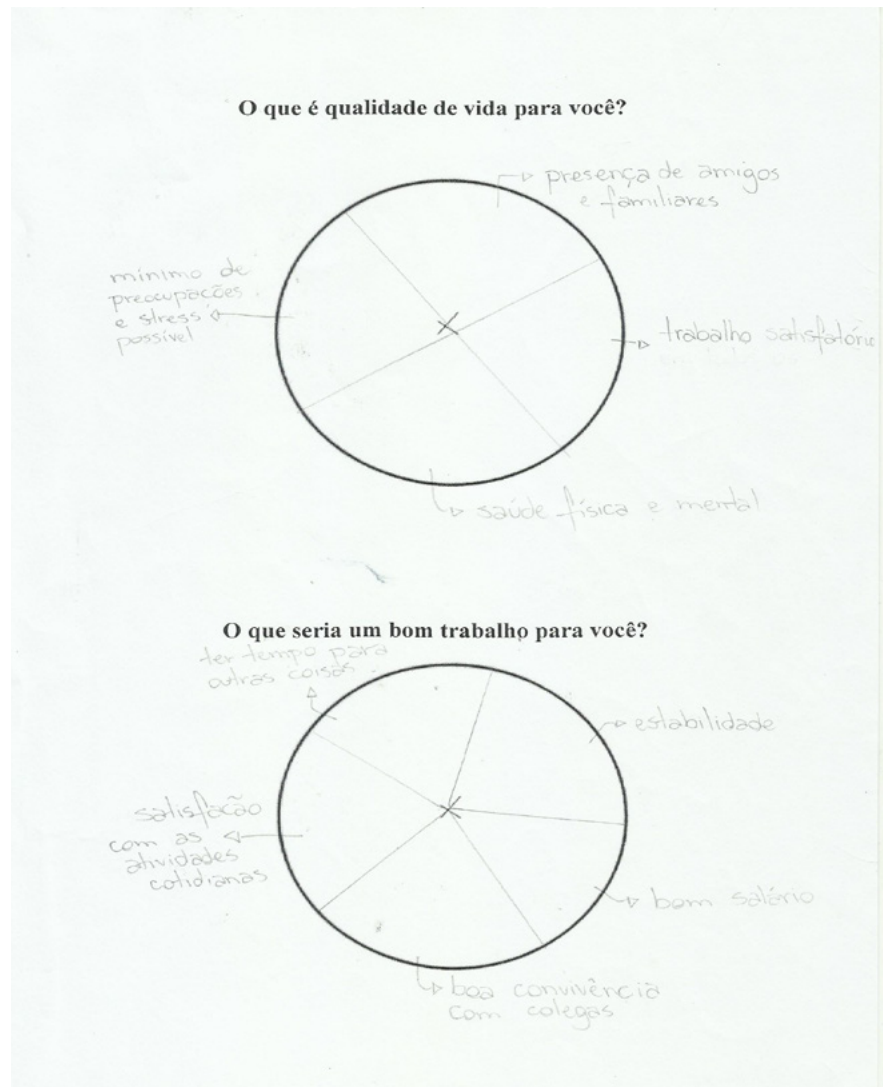 O que é qualidade de vida para você?
presença de amigos
e familiares
mínimo de
preocupações
e stress
possível
trabalho satisfatório
saúde física e mental
O que seria um bom trabalho para você?
ter tempo para
outras coisas
estabilidade
satisfação
com as
atividades
cotidianas
bom salário
boa convivência
com colegas